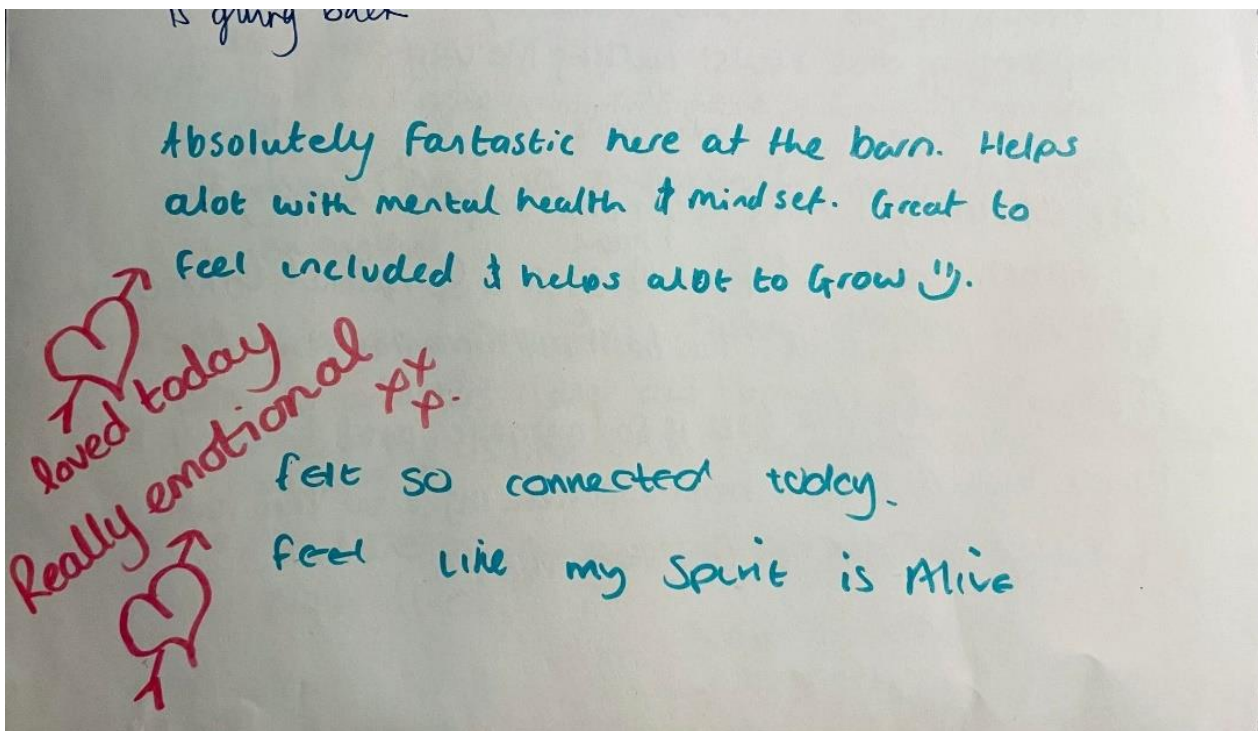 is giving back
Absolutely Fantastic here at the barn. Helps
alot with mental health & mindset. Great to
feel included & helps alot to Grow :).
loved today
Really emotional xxx.
felt so connected today.
feel like my Spirit is Alive